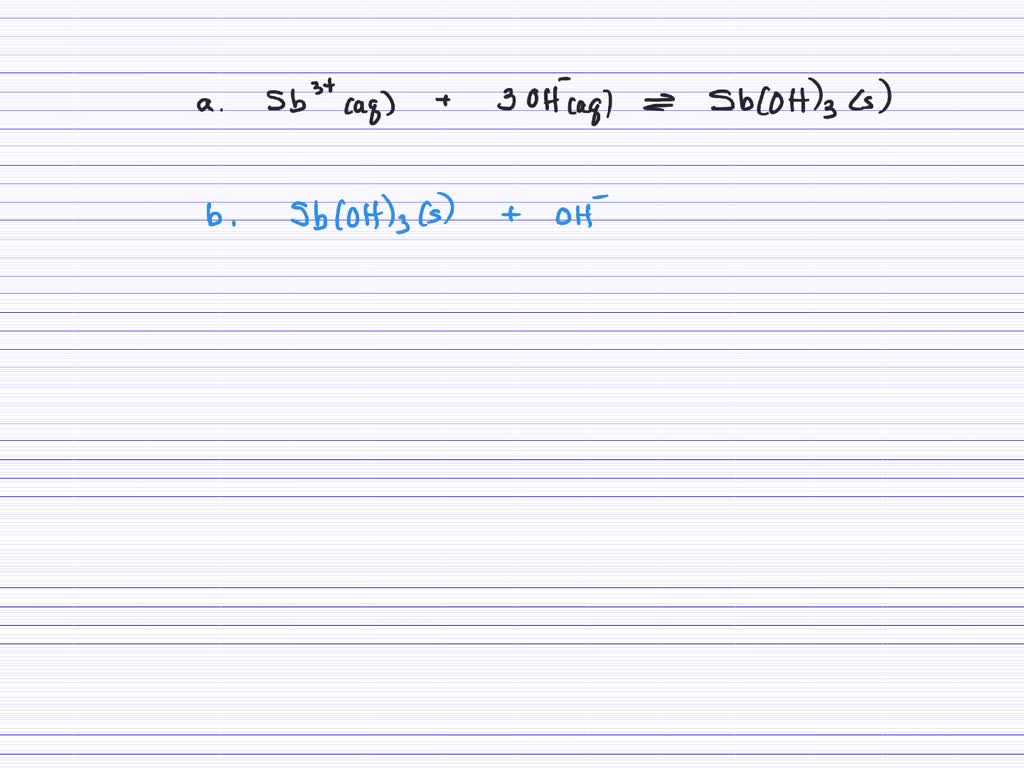 a. Sb³⁺(aq) + 3 OH⁻(aq) ⇌ Sb(OH)₃ (s)
b. Sb(OH)₃(s) + OH⁻